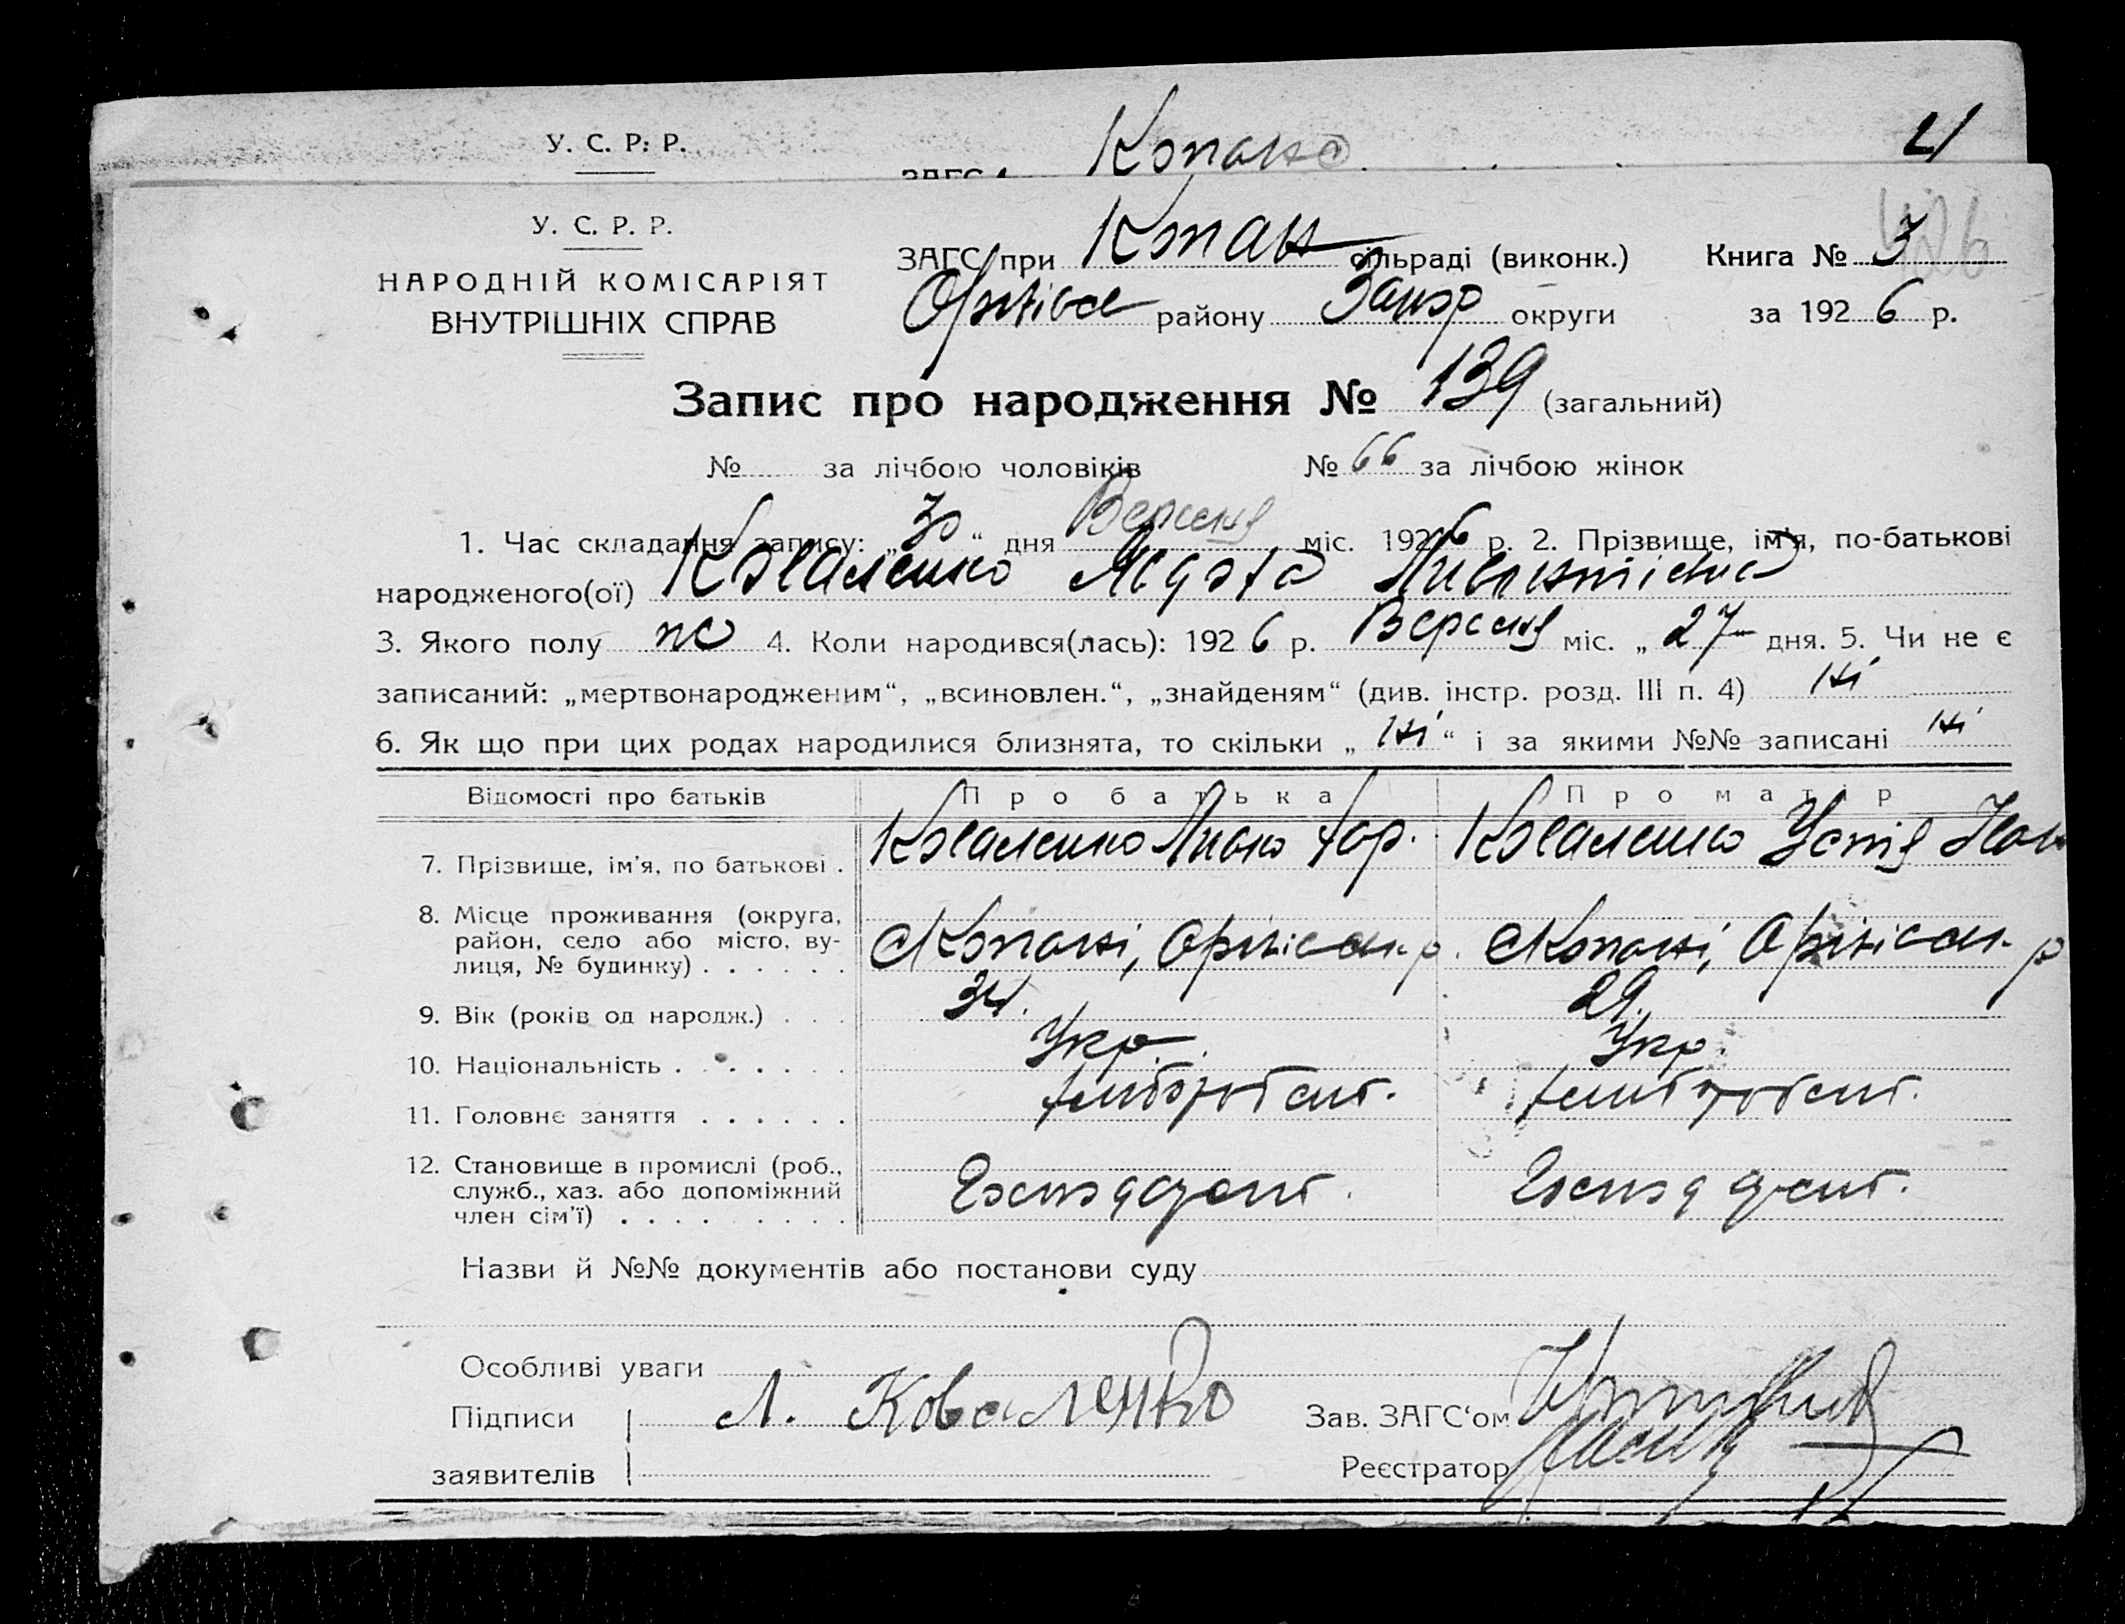 У. С. Р. Р.
4
У. С. Р. Р.
НАРОДНІЙ КОМІСАРІЯТ
ВНУТРІШНІХ СПРАВ
ЗАГС при Копан сільраді (виконк.) Книга № 3
Оріхівс району Запор округи за 1926 р.
Запис про народження № 139 (загальний)
№ за лічбою чоловіків № 66 за лічбою жінок
1. Час складання запису: „30“ дня Вересня міс. 1926 р. 2. Прізвище, ім'я, по-батькові
народженого(ої) Коваленко
3. Якого полу жс 4. Коли народився(лась): 1926 р. Вересня міс. „27 дня. 5. Чи не є
записаний: „мертвонародженим“, „всиновлен.“, „знайденям“ (див. інстр. розд. III п. 4) ні
6. Як що при цих родах народилися близнята, то скільки „ні“ і за якими №№ записані ні
Відомості про батьків Про батька Про матір
7. Прізвище, ім'я, по батькові . Коваленко Коваленко Устія
8. Місце проживання (округа, район, село або місто, вулиця, № будинку) . . . . . . с Копані, Оріхівськ. р. с Копані, Оріхівськ. р
9. Вік (років од народж.) . . . 34. 29.
10. Національність . . . . . . . Укр. Укр.
11. Головне заняття . . . . . . хлібороб
12. Становище в промислі (роб., служб., хаз. або допоміжний член сім'ї) . . . . . . . . .
Назви й №№ документів або постанови суду
Особливі уваги
Підписи Л. Коваленко Зав. ЗАГС‘ом
заявителів Реєстратор